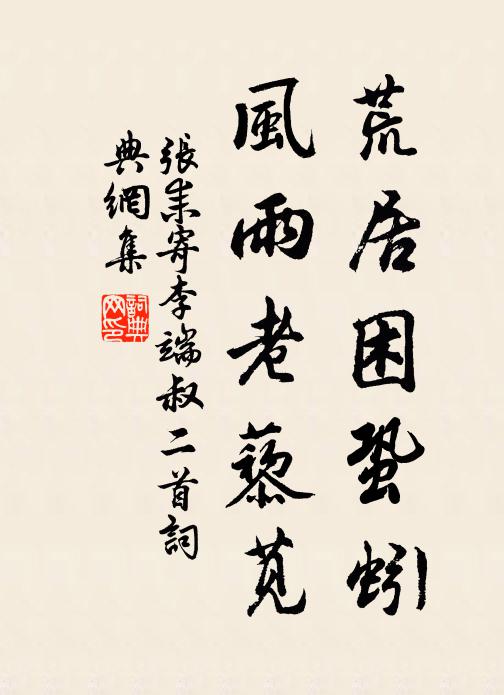 荒居困蛩蚓
風雨老藜莧
張耒寄李端叔二首詞
典網集
詞典网印